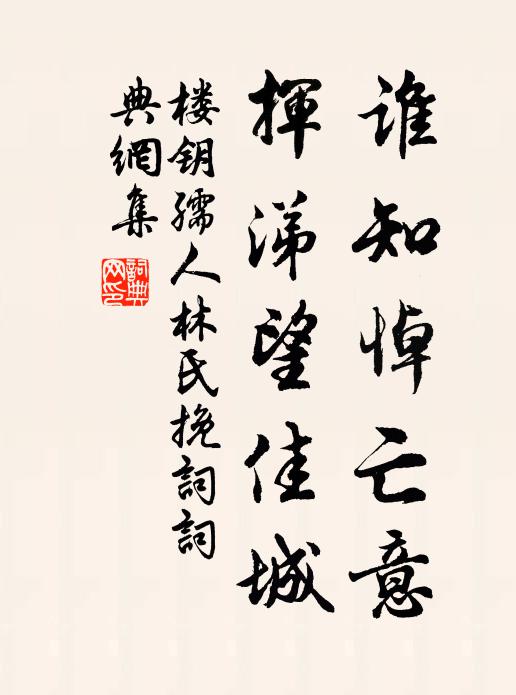 谁知悼亡意
揮涕望佳城
楼钥孺人林氏挽詞詞
典網集
詞典
网印